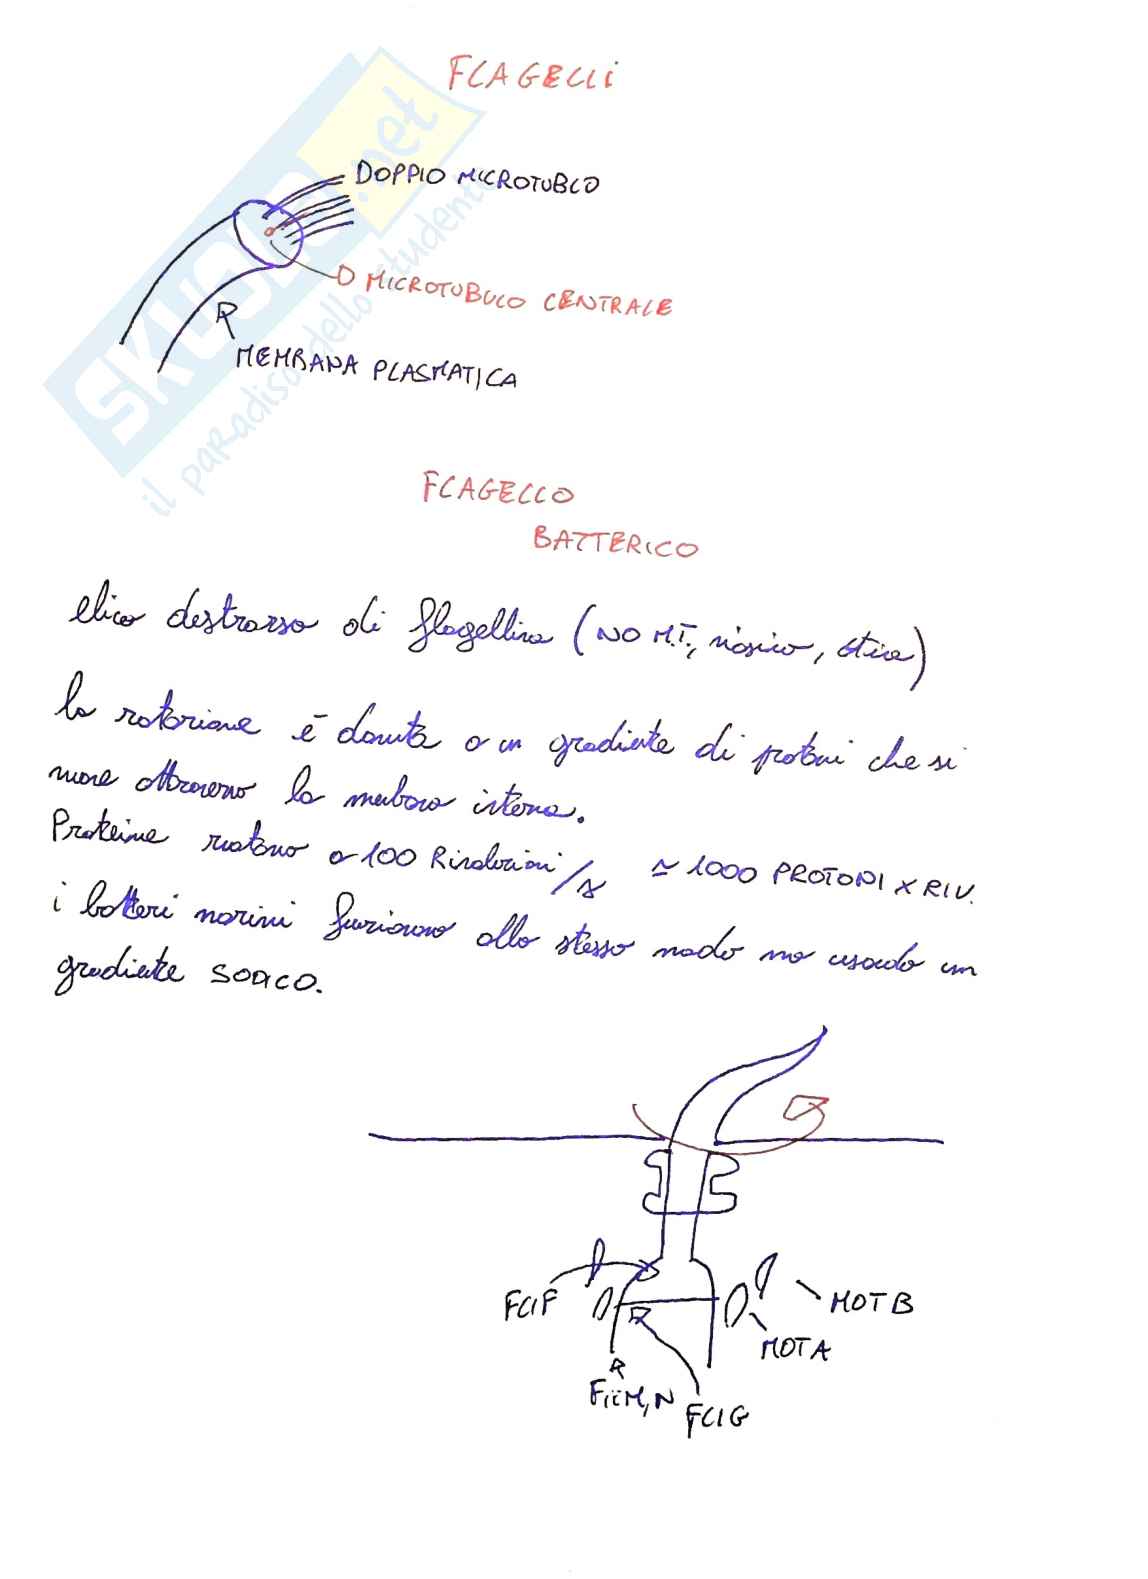 FLAGELLI
DOPPIO MICROTUBLO
MICROTUBULO CENTRALE
MEMBRANA PLASMATICA
SKUOLA.net
il paradiso dello studente
FLAGELLO
BATTERICO
elica destrorsa di flagellina (NO M.T., miosina, actina)
la rotazione è dovuta a un gradiente di protoni che si
muove attraverso la membrana interna.
Proteine ruotano a 100 Rivoluzioni/s ≃ 1000 PROTONI X RIV.
i batteri marini funzionano allo stesso modo ma usando un
gradiente SODICO.
FLIF
MOT B
MOT A
FLiM, N
FLIG